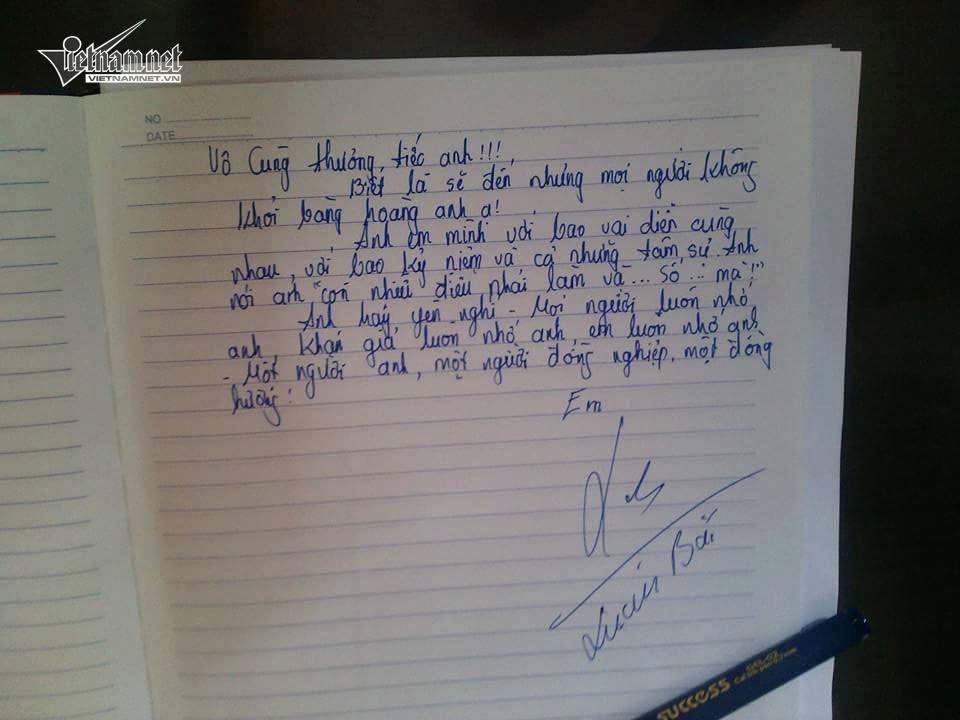 Vietnamnet
VIETNAMNET.VN
NO
DATE
Vô Cùng thương, tiếc anh!!!
Biết là sẽ đến nhưng mọi người không
khỏi bàng hoàng anh ạ!
Anh em mình với bao vai diễn cùng
nhau, với bao kỷ niệm và cả những tâm sự. Anh
nói anh "còn nhiều điều phải làm và... số... mà!"
Anh hãy yên nghỉ - Mọi người luôn nhớ
anh, khán giả luôn nhớ anh, em luôn nhớ anh
- Một người anh, một người đồng nghiệp, một đồng
hương!
Em
Xuân Bắc
SUCCESS